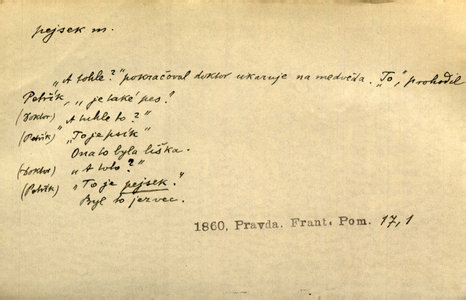 pejsek m.
„A tohle?" pokračoval doktor ukazuje na medvěda. „To", prohodil
Petřík, „je také pes."
(Doktor) „A tuhle to?"
(Petřík) „To je psík"
Ona to byla liška.
(Doktor) „A toto?"
(Petřík) „To je pejsek."
Byl to jezvec.
1860, Pravda. Frant. Pom. 17,1